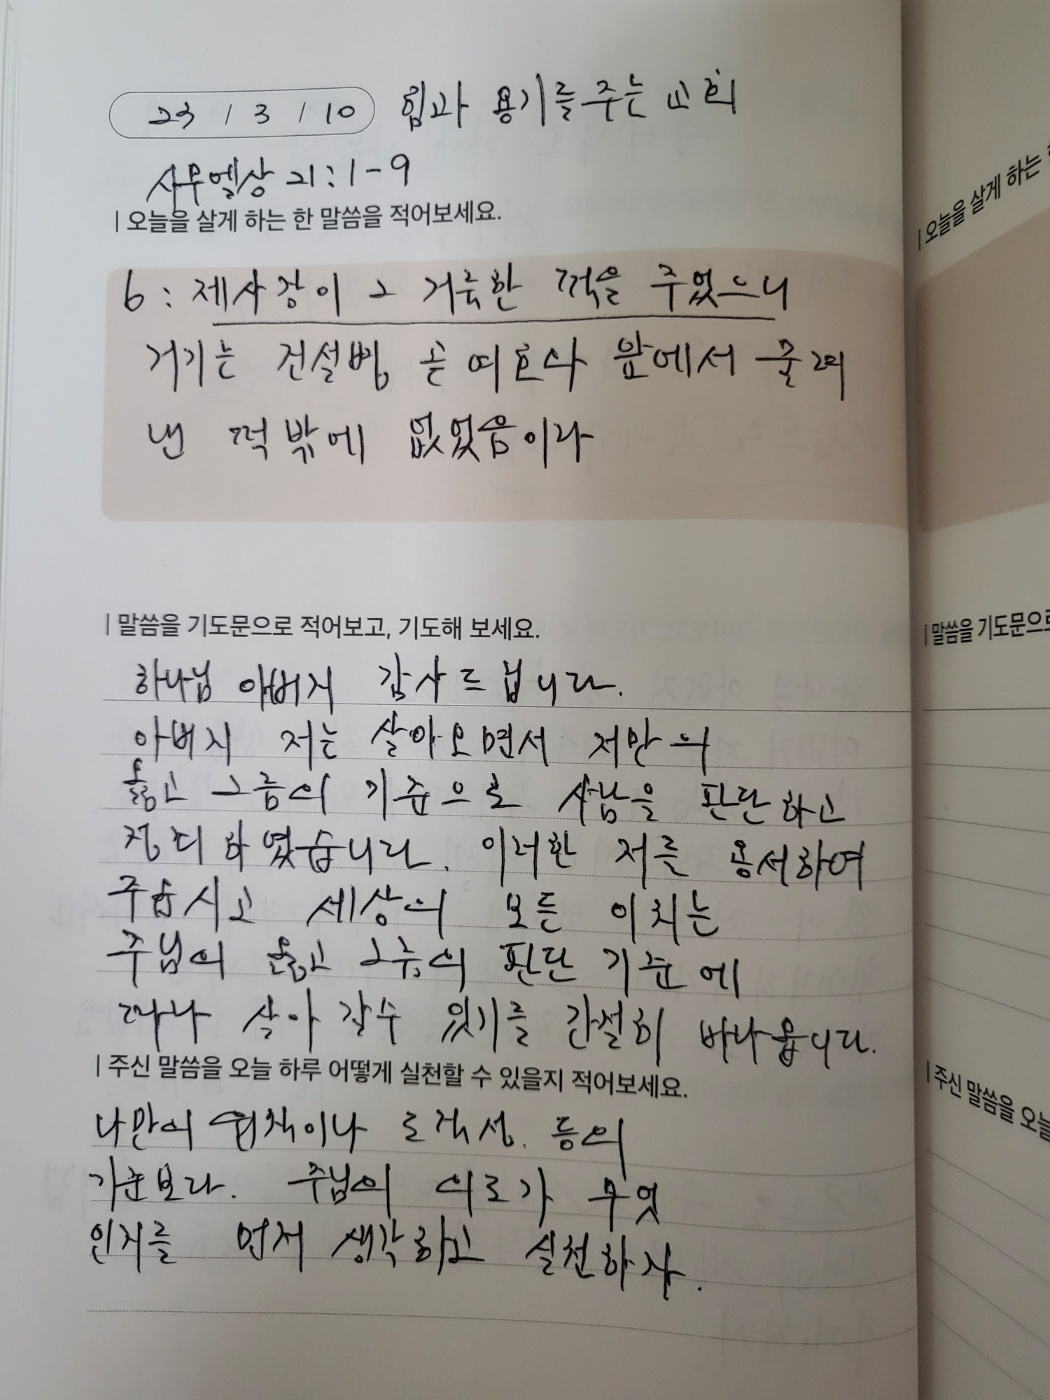 23 / 3 / 10 힘과 용기를 주는 교회
사무엘상 21:1-9
| 오늘을 살게 하는 한 말씀을 적어보세요.
6: 제사장이 그 거룩한 떡을 주었으니
거기는 진설병, 곧 여호와 앞에서 물려
낸 떡밖에 없었음이라
| 말씀을 기도문으로 적어보고, 기도해 보세요.
하나님 아버지 감사드립니다.
아버지 저는 살아오면서 저만의
옳고 그름의 기준으로 사람을 판단하고
정죄하였습니다. 이러한 저를 용서하여
주옵시고 세상의 모든 이치는
주님의 옳고 그름의 판단 기준에
따라 살아 갈수 있기를 간절히 바라옵니다.
| 주신 말씀을 오늘 하루 어떻게 실천할 수 있을지 적어보세요.
나만의 원칙이나 도덕성. 등의
기준보다. 주님의 의도가 무엇
인지를 먼저 생각하고 실천하자.
| 오늘을 살게 하는
| 말씀을 기도문으로
| 주신 말씀을 오늘